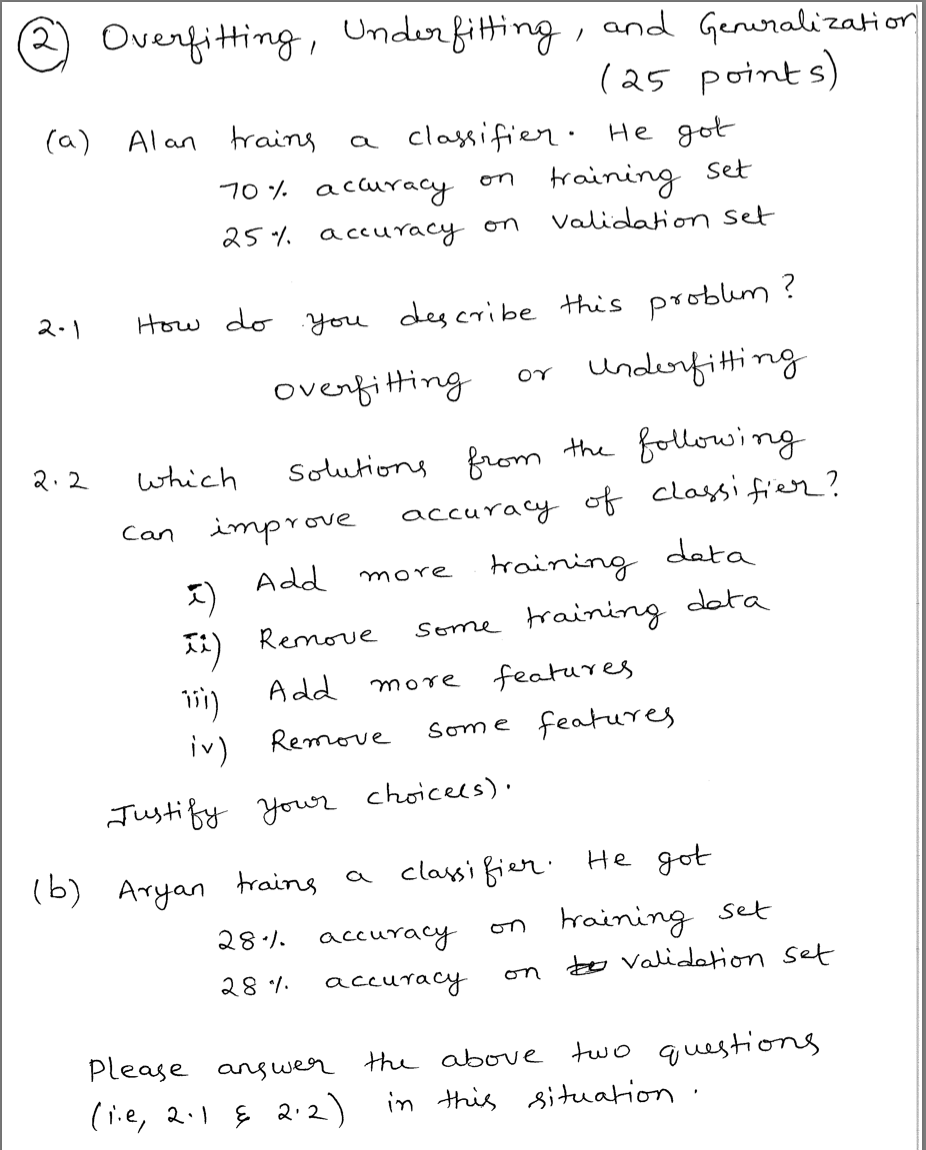 ② Overfitting, Underfitting, and Generalization
(25 points)
(a) Alan trains a classifier. He got
70% accuracy on training set
25% accuracy on validation set
2.1 How do you describe this problem?
overfitting or underfitting
2.2 which solutions from the following
can improve accuracy of classifier?
i) Add more training data
ii) Remove some training data
iii) Add more features
iv) Remove some features
Justify your choice(s).
(b) Aryan trains a classifier. He got
28% accuracy on training set
28% accuracy on validation set
Please answer the above two questions
(i.e, 2.1 & 2.2) in this situation.